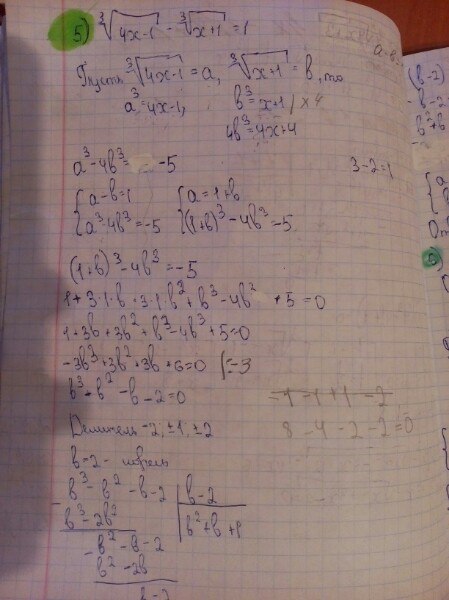 5) ∛(4x-1) - ∛(x+1) = 1
Пусть ∛(4x-1) = a, ∛(x+1) = b, то
a³=4x-1, b³=x+1 | ×4
4b³=4x+4
a³-4b³= -5
3-2=1
{a-b=1 {a=1+b
{a³-4b³=-5 {(1+b)³-4b³-5
(1+b)³-4b³=-5
1+3·1·b+3·1·b²+b³-4b³ +5=0
1+3b+3b²+b³-4b³+5=0
-3b³+3b²+3b+6=0 |:-3
b³-b²-b-2=0
-1-1+1-2
Делитель -2: ±1; ±2
8-4-2-2=0
b=2 - корень
b³-b²-b-2 | b-2
b³-2b² | b²+b+1
b²-b-2
b²-2b
b-2